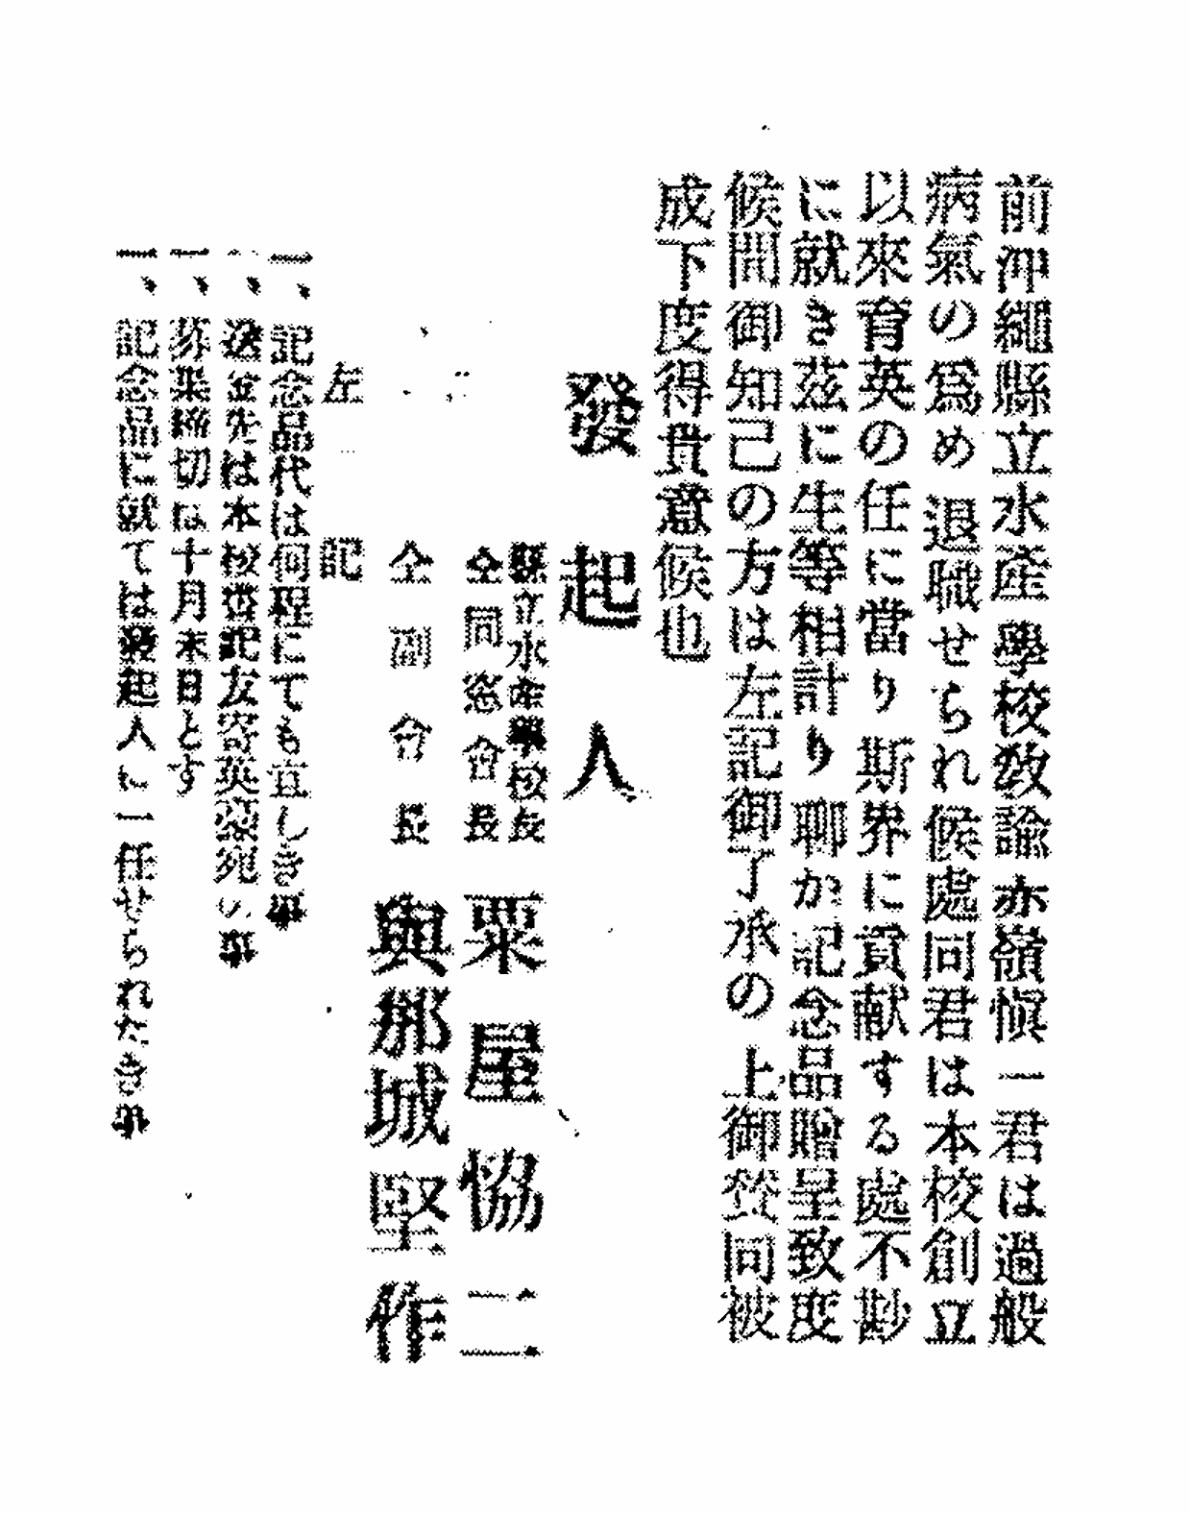 前沖繩縣立水產學校敎諭赤嶺愼一君は過般
病氣の爲め退職せられ候處同君は本校創立
以來育英の任に當り斯界に貢献する處不尠
に就き茲に生等相計り聊か記念品贈呈致度
候間御知己の方は左記御了承の上御賛同被
成下度得貴意候也
發起人
縣立水產學校長
仝同窓會長 粟屋協二
仝副會長 與那城堅作
左記
一、記念品代は何程にても宜しき事
一、送金先は本校書記友寄英 宛の事
一、募集締切は十月末日とす
一、記念品に就ては發起人に一任せられたき事